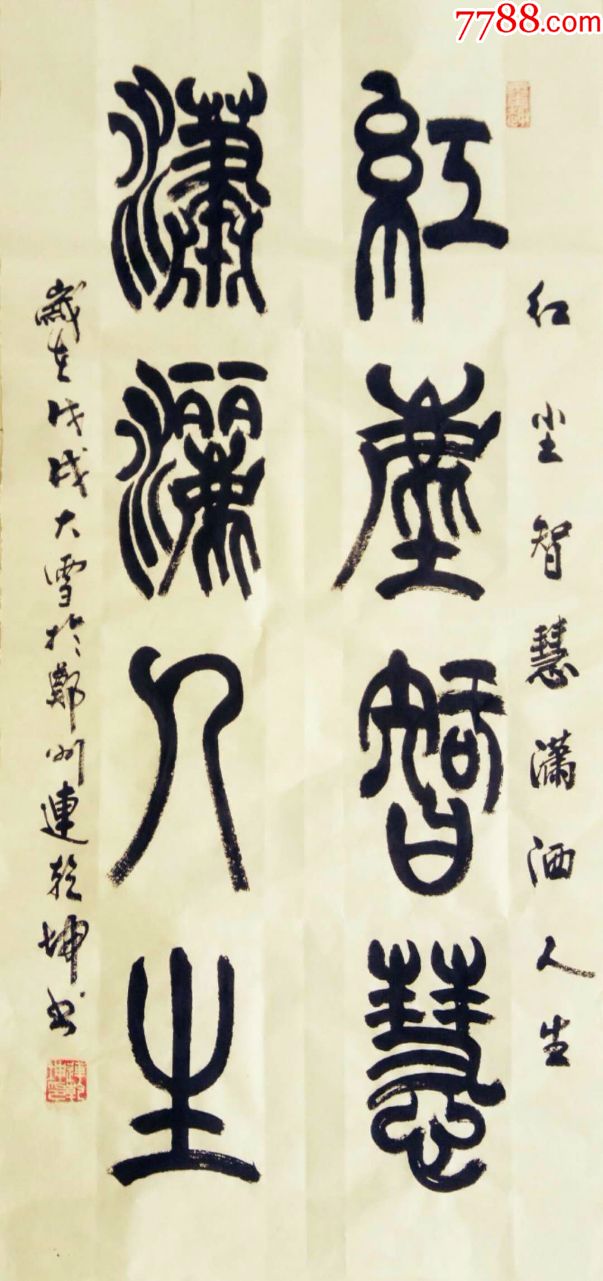 7788.com
红尘智慧潇洒人生
紅塵智慧
瀟灑人生
歲在戊戌大雪於鄭州連乾坤书
連乾坤印